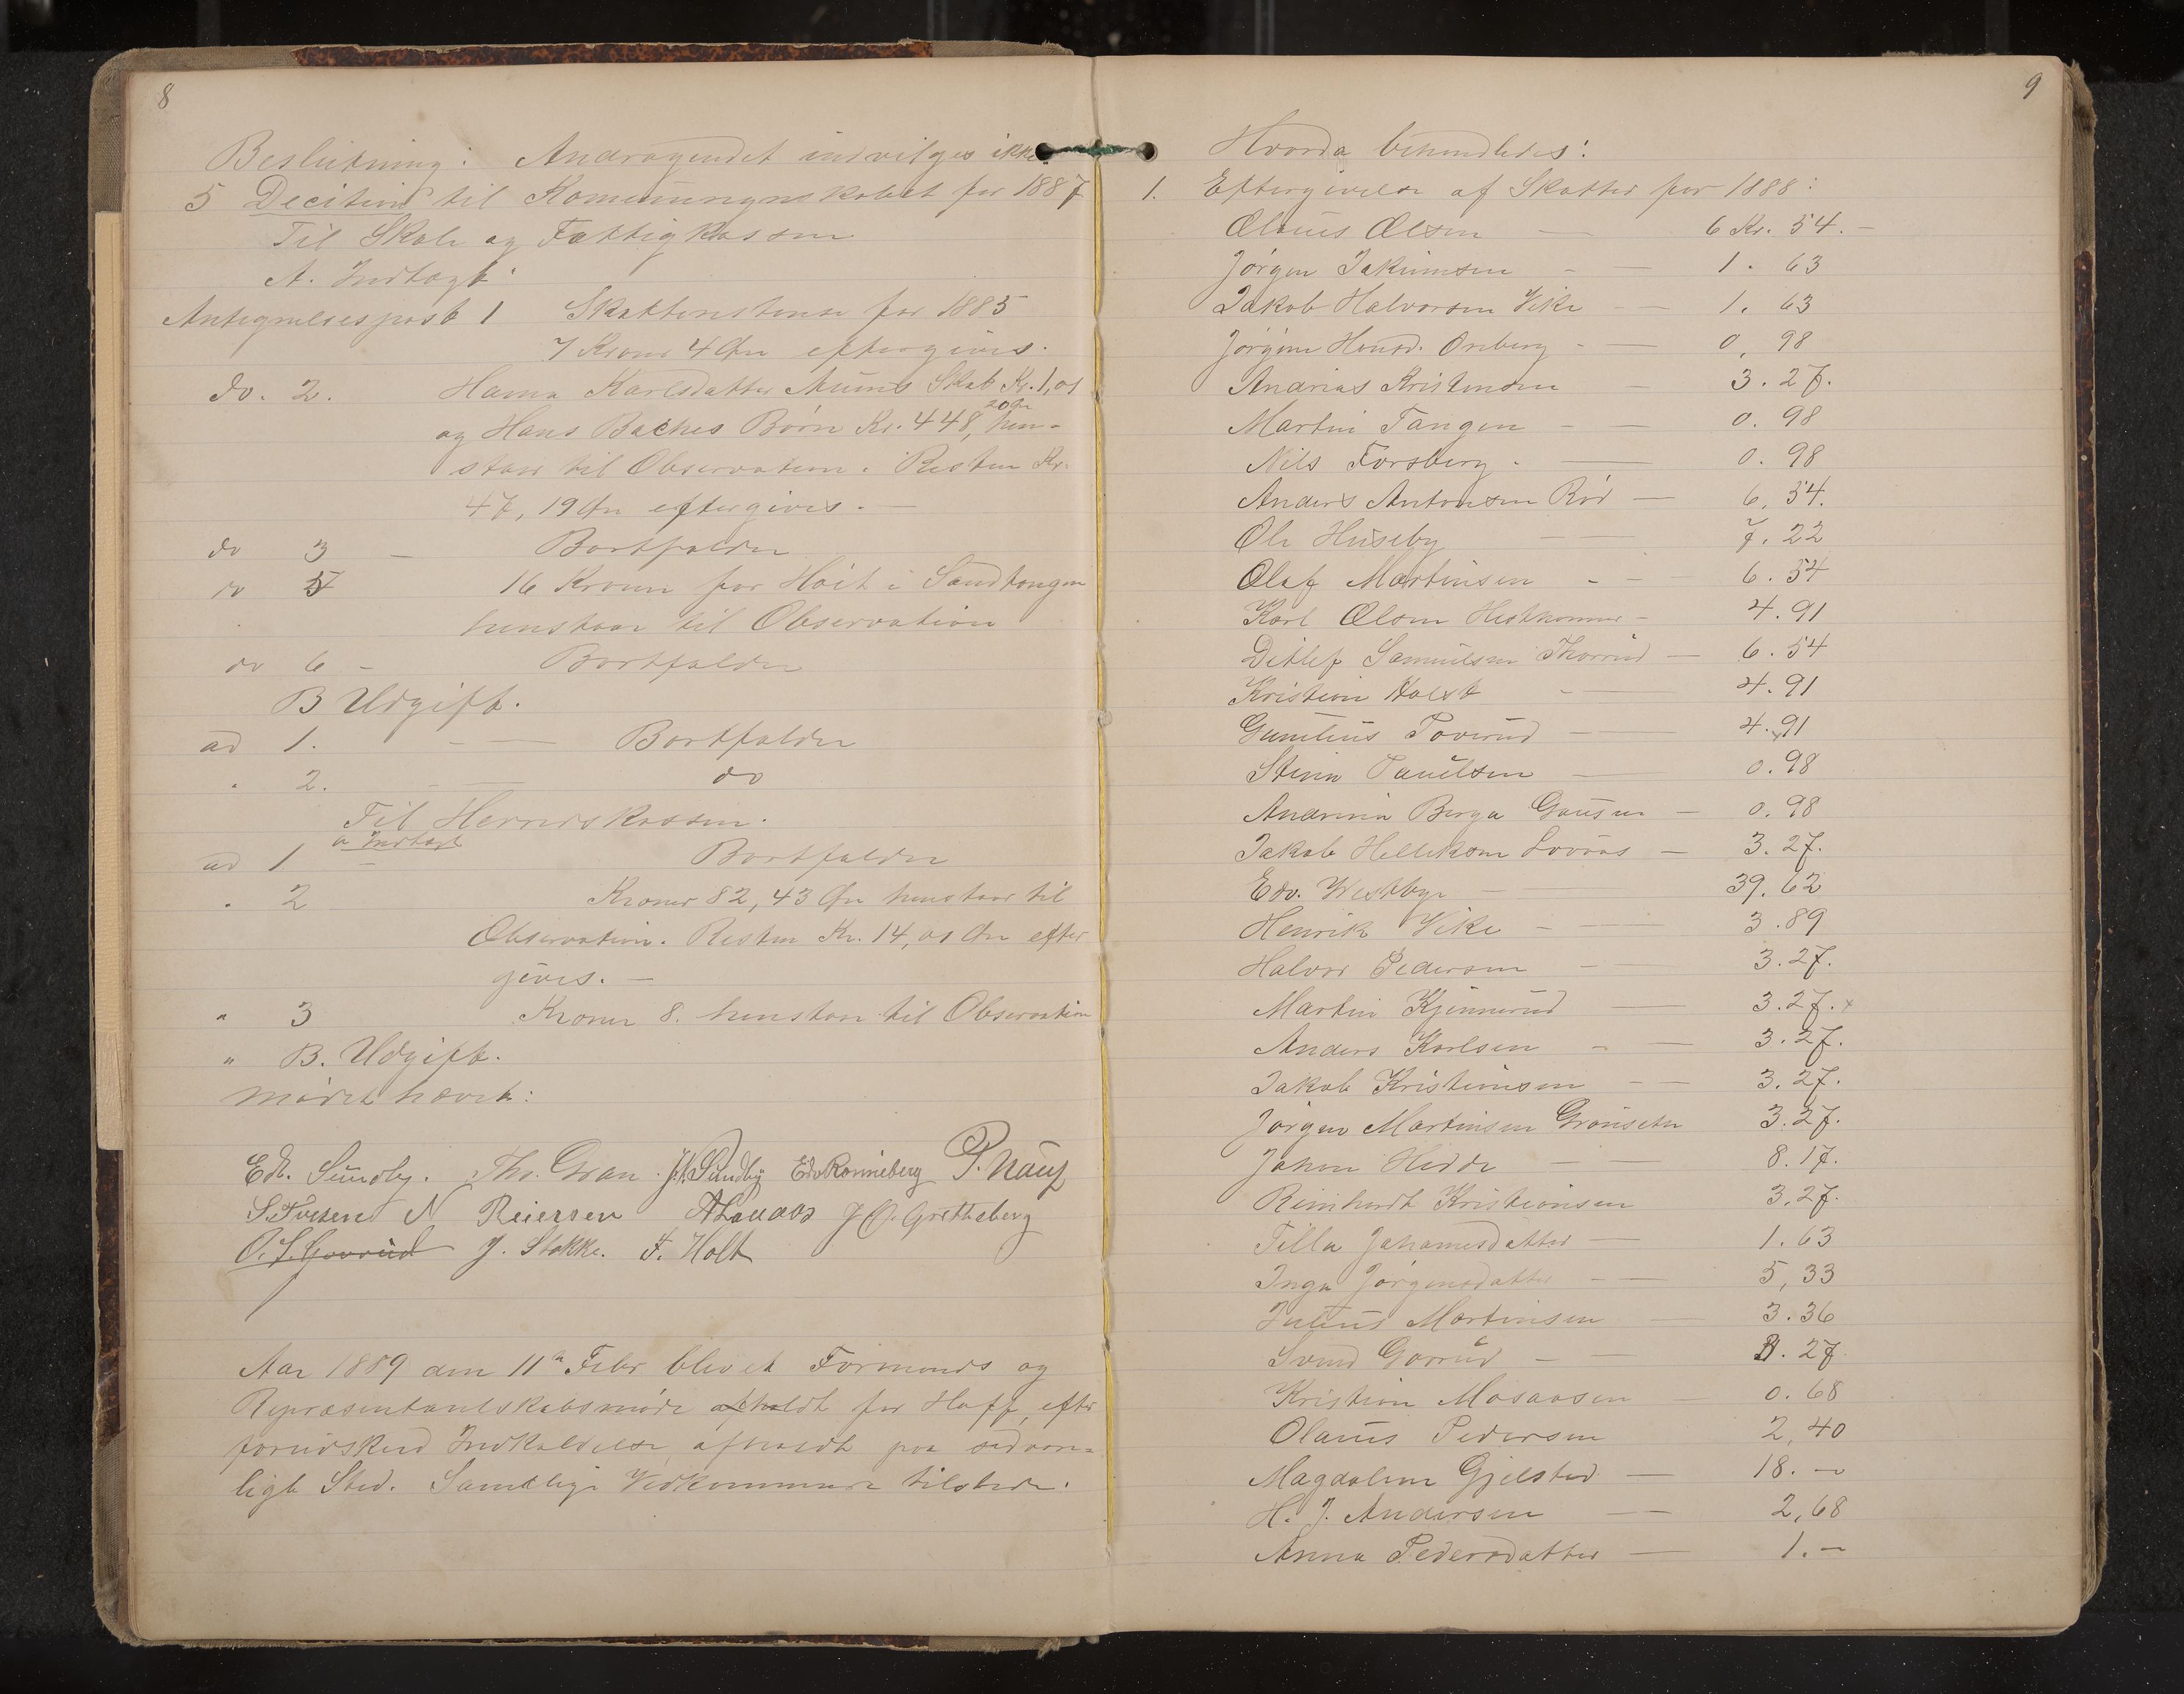 8
Beslutning: Andragendet indvilges ikke.
5 Decition til Kommuneregnskabet for 1887
Til Skole og Fattigkassen
A. Indtægt
Antegnelsespost 1 Skatterestense for 1885
7 Kroner 4 Øre eftergives.
do. 2. Hanna Karlsdatter Skat Kr. 1,01
og Hans Baches Børn Kr. 448, 20 Øre hen-
staar til Observation. Resten Kr.
47, 19 Øre eftergives. —
do 3 — Bortfalder
do 5 16 Kroner for Hoit i Sandtangen
henstaar til Observation
do 6 — Bortfalder
B Udgift.
ad 1. — — Bortfalder
" 2. — — do
Til Herredskassen.
a Indtægt
ad 1 — Bortfalder
" 2 Kroner 82, 43 Øre henstaar til
Observation. Resten Kr. 14, 01 Øre efter
gives. —
" 3 Kroner 8. henstaar til Observation
" B. Udgift.
Mødet hævet:
Edv. Sundby. Thv. Gran. J. N. Sundby Edv Ronneberg P. Haug
S. Iversen N Reiersen A Lauaas J O. Gretteberg
O. S. Govrud J. Stokke. F. Holt
Aar 1889 den 11te Febr blev et Formends og
Repræsentantskabsmøde afholdt for Hoff, efter
forudskeed Indkaldelse afholdt paa sædvan-
ligt Sted. Samtlige Vedkommende tilstede.
9
Hvorda behandledes:
1. Eftergivelse af Skatter for 1888:
Olaus Olsen — 6 Kr. 54. —
Jørgen Jakimsen — 1. 63
Jakob Halvorsen Vike — 1. 63
Jørgine Oreberg — 0, 98
Andrias Kristensen — 3. 27.
Martin Tangen — 0. 98
Nils Forsberg — 0. 98
Anders Antonsen Rød — 6, 54.
Ole Huseby — 7. 22
Olaf Martinsen — 6. 54
Karl Olsen Hestkommer — 4. 91
Ditlef Samuelsen Thorrud — 6. 54
Kristian Holst — 4. 91
Gunelius Poverud — 4. 91
Stina Paulsen — 0. 98
Andrina Berga Gausen — 0. 98
Jakob Helleksen Lovaas — 3. 27.
Edv. Westbye — 39. 62
Henrik Vike — 3. 89
Halvor Pedersen — 3. 27.
Martin Kjinnerud — 3. 27. x
Anders Karlsen — 3. 27.
Jakob Kristiansen — 3. 27.
Jørgen Martinsen Grønseten 3. 27.
Johan Hedde — 8. 17.
Reinhardt Kristiansen 3, 27.
Tilla Johannesdatter — 1. 63
Inga Jørgensdatter — 5, 33
Julius Martinsen — 3. 36
Svend Govrud — 3. 27
Kristian Mosaasen — 0. 68
Olaus Pedersen 2, 40
Magdalene Gjelsted — 18. —
H. J. Andersen — 2, 68
Anna Pedersdatter — 1. —